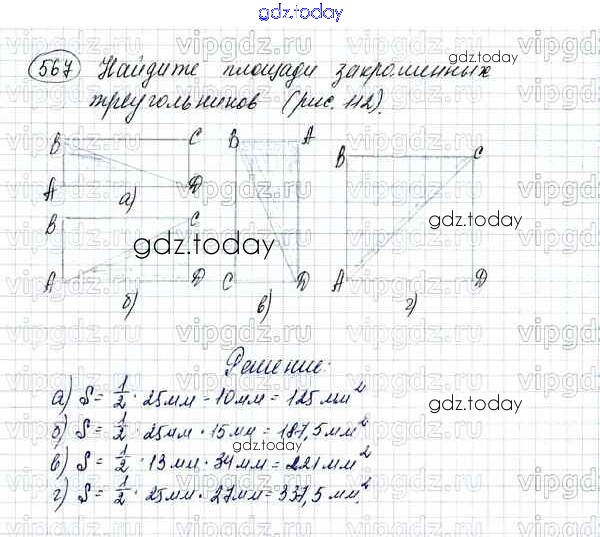 gdz.today
567 Найдите площади закрашенных
треугольников (рис. 112).
B C
A D
а)
B C
A D
б)
B A
C D
в)
B C
A D
г)
gdz.today
gdz.today
Решение:
а) S = 1/2 · 25мм · 10мм = 125 мм²
б) S = 1/2 · 25мм · 15мм = 187,5мм²
в) S = 1/2 · 13мм · 34мм = 221мм²
г) S = 1/2 · 25мм · 27мм = 337,5 мм²
gdz.today
gdz.today
vipgdz.ru